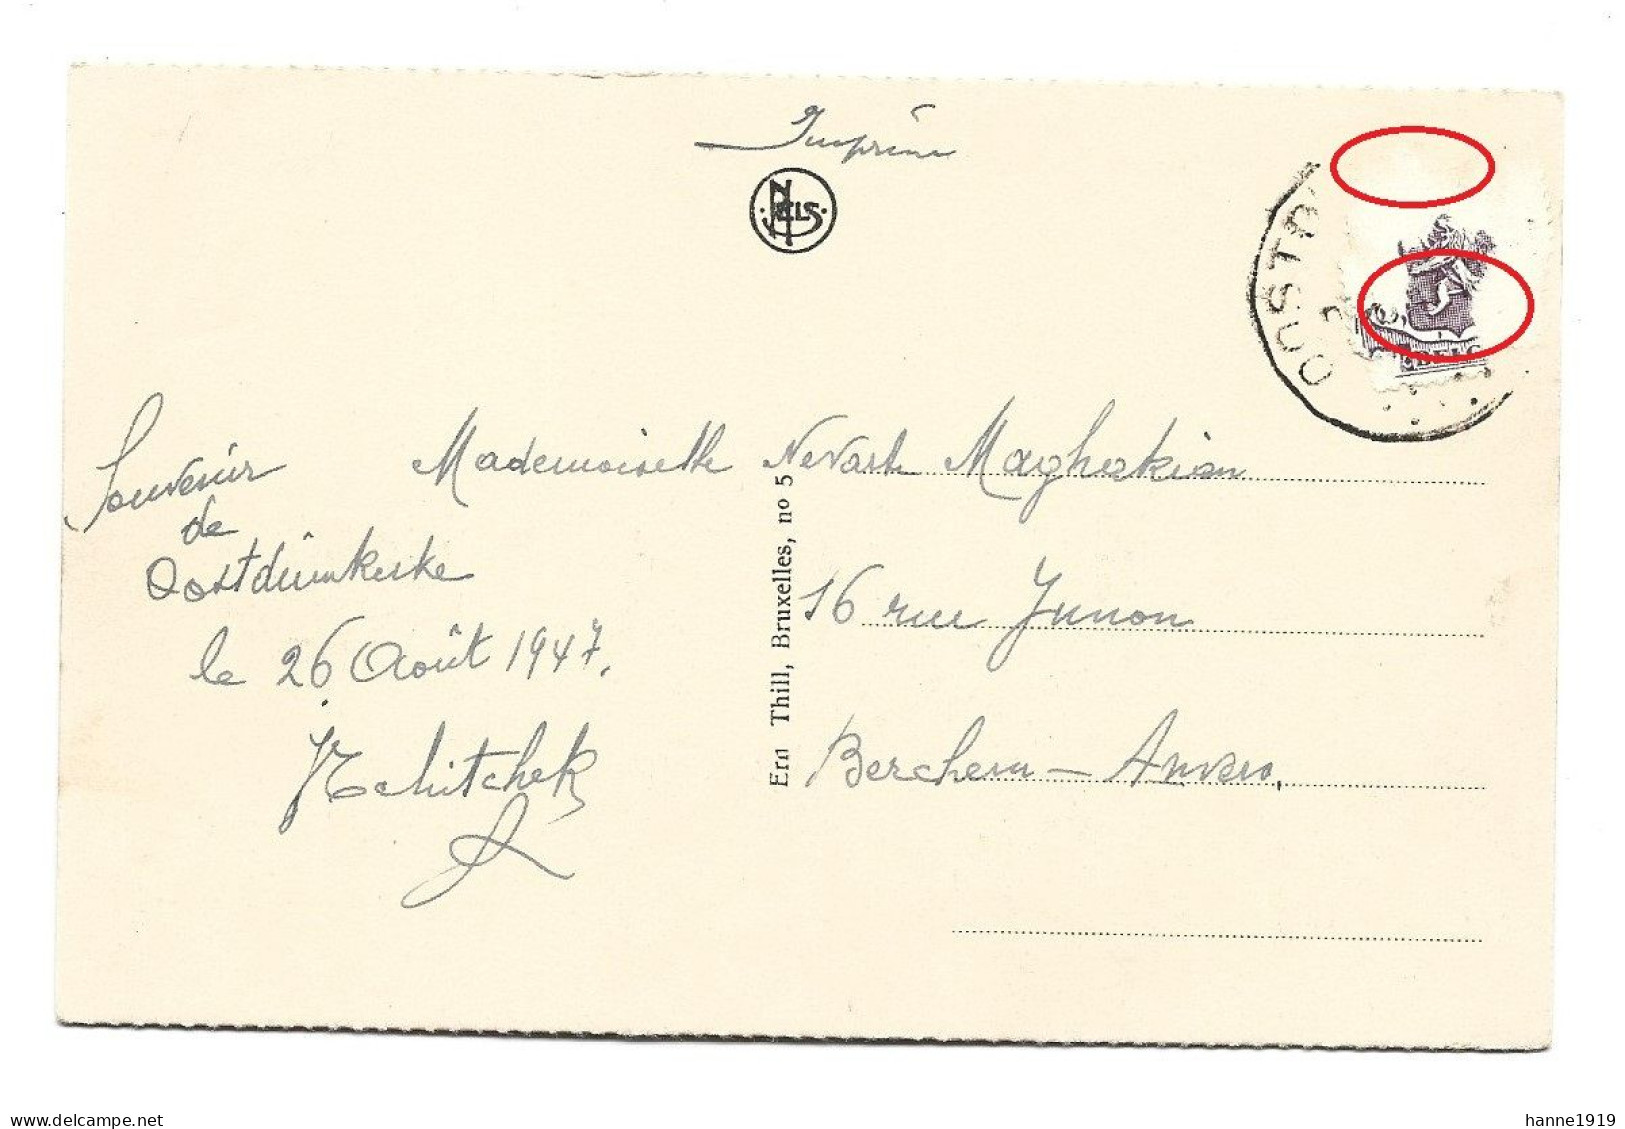 Imprimé
NELS
OOSTD
BELG
Souvenir
de
Oostdüinkerke
le 26 Août 1947.
Mademoiselle Nevart Maghakian
16 rue Junon
Berchem - Anvers,
Ern Thill, Bruxelles, no 5
www.delcampe.net
hanne1919